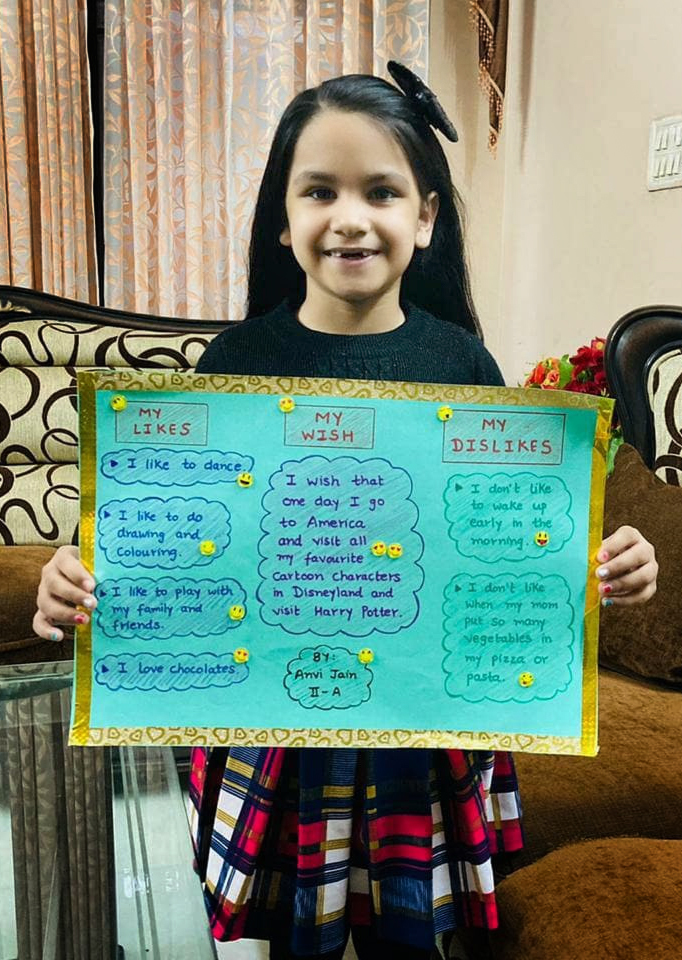 MY
LIKES
I like to dance.
I like to do
drawing and
Colouring.
I like to play with
my family and
friends.
I love chocolates.
MY
WISH
I wish that
one day I go
to America
and visit all
my favourite
Cartoon characters
in Disneyland and
visit Harry Potter.
BY:
Anvi Jain
II-A
MY
DISLIKES
I don't like
to wake up
early in the
morning.
I don't like
when my mom
put so many
vegetables in
my pizza or
pasta.